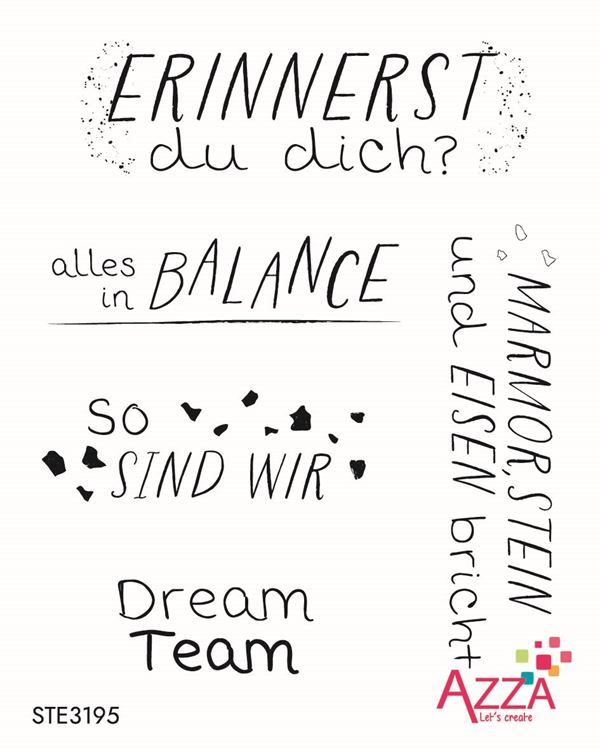 ERINNERST
du dich?
alles
in BALANCE
MARMOR, STEIN
und EISEN bricht
So
SIND WIR
Dream
Team
AZZA
Let's create
STE3195